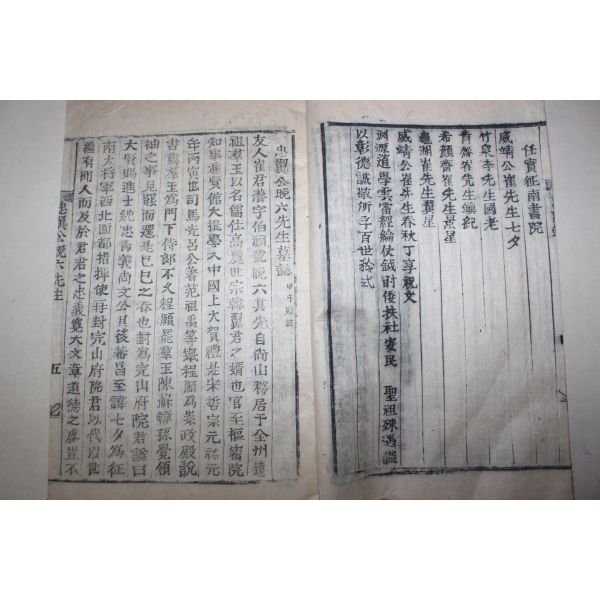 任實征南書院
威靖公崔先生七夕
竹泉李先生國老
青齋崔先生
希顏齋崔先生景星
龜湖崔先生冀星
威靖公崔先生春秋丁享祝文
淵源道學雲雷經綸仗鉞討倭扶社奠民 聖祖殊遇謚
以彰德誠敬所孚百世矜式
忠翼公晚六先生墓誌
友人崔君瀁字伯 號晚六其先自尙山移居于全州遠
祖羣王以名儒仕高麗世宗韓翼君之婿也官至樞密院
知事進賢館大提學入中國上大賀禮是宋哲宗元祐元
年丙寅也司馬光呂公著范祖禹等與程頤爲崇政殿說
書薦羣王爲門下侍郎不久程頤罷羣王陳蘇轍孫覺領
袖之事見 而還是己巳之春也封爲完山府院君謚曰
大賢賜進士純忠 義尙文公其後蕃昌至諱七夕爲征
南大將軍西北面都指揮使 封完山府院君以代以世
繼有聞人而及於君君之忠義寬大文章道德之盛豈不
忠翼公晚六先生
五